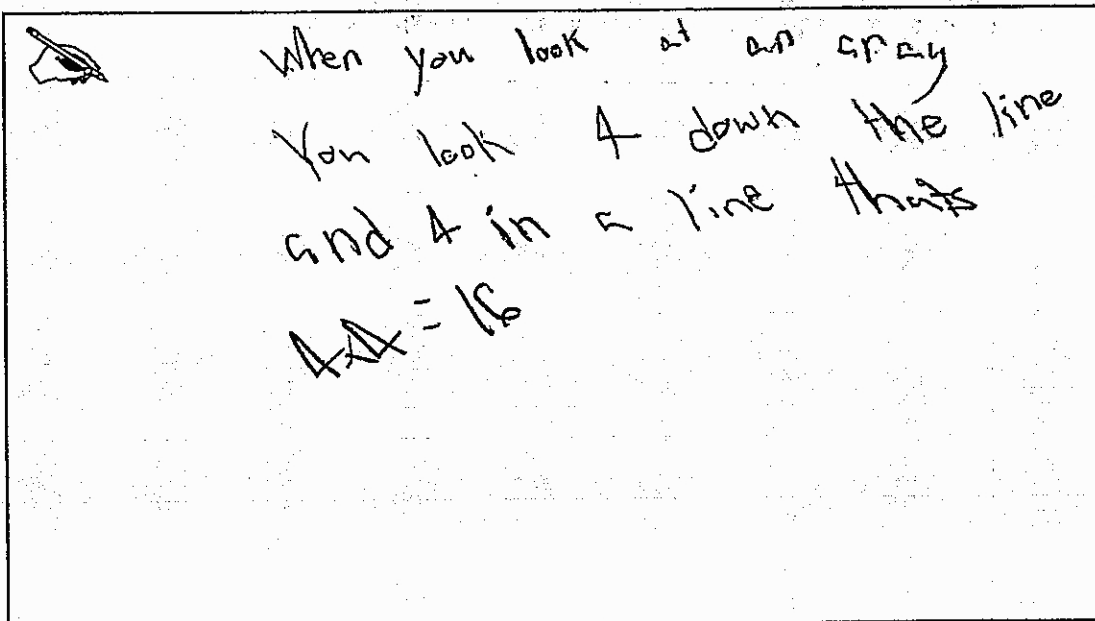 When you look at an aray
You look 4 down the line
and 4 in a line thats
4x4 = 16